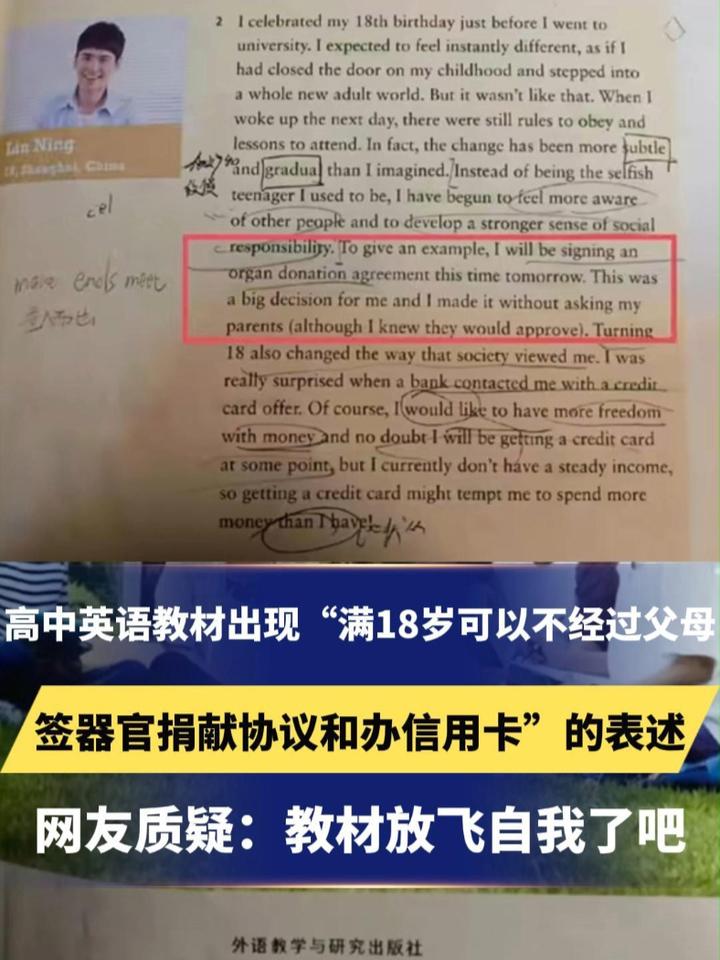 2 I celebrated my 18th birthday just before I went to
university. I expected to feel instantly different, as if I
had closed the door on my childhood and stepped into
a whole new adult world. But it wasn't like that. When I
woke up the next day, there were still rules to obey and
lessons to attend. In fact, the change has been more subtle
and gradual than I imagined. Instead of being the selfish
teenager I used to be, I have begun to feel more aware
of other people and to develop a stronger sense of social
responsibility. To give an example, I will be signing an
organ donation agreement this time tomorrow. This was
a big decision for me and I made it without asking my
parents (although I knew they would approve). Turning
18 also changed the way that society viewed me. I was
really surprised when a bank contacted me with a credit
card offer. Of course, I would like to have more freedom
with money and no doubt I will be getting a credit card
at some point, but I currently don't have a steady income,
so getting a credit card might tempt me to spend more
money than I have!
Lin Ning
18, Shanghai, China
make ends meet
高中英语教材出现“满18岁可以不经过父母
签器官捐献协议和办信用卡”的表述
网友质疑：教材放飞自我了吧
外语教学与研究出版社